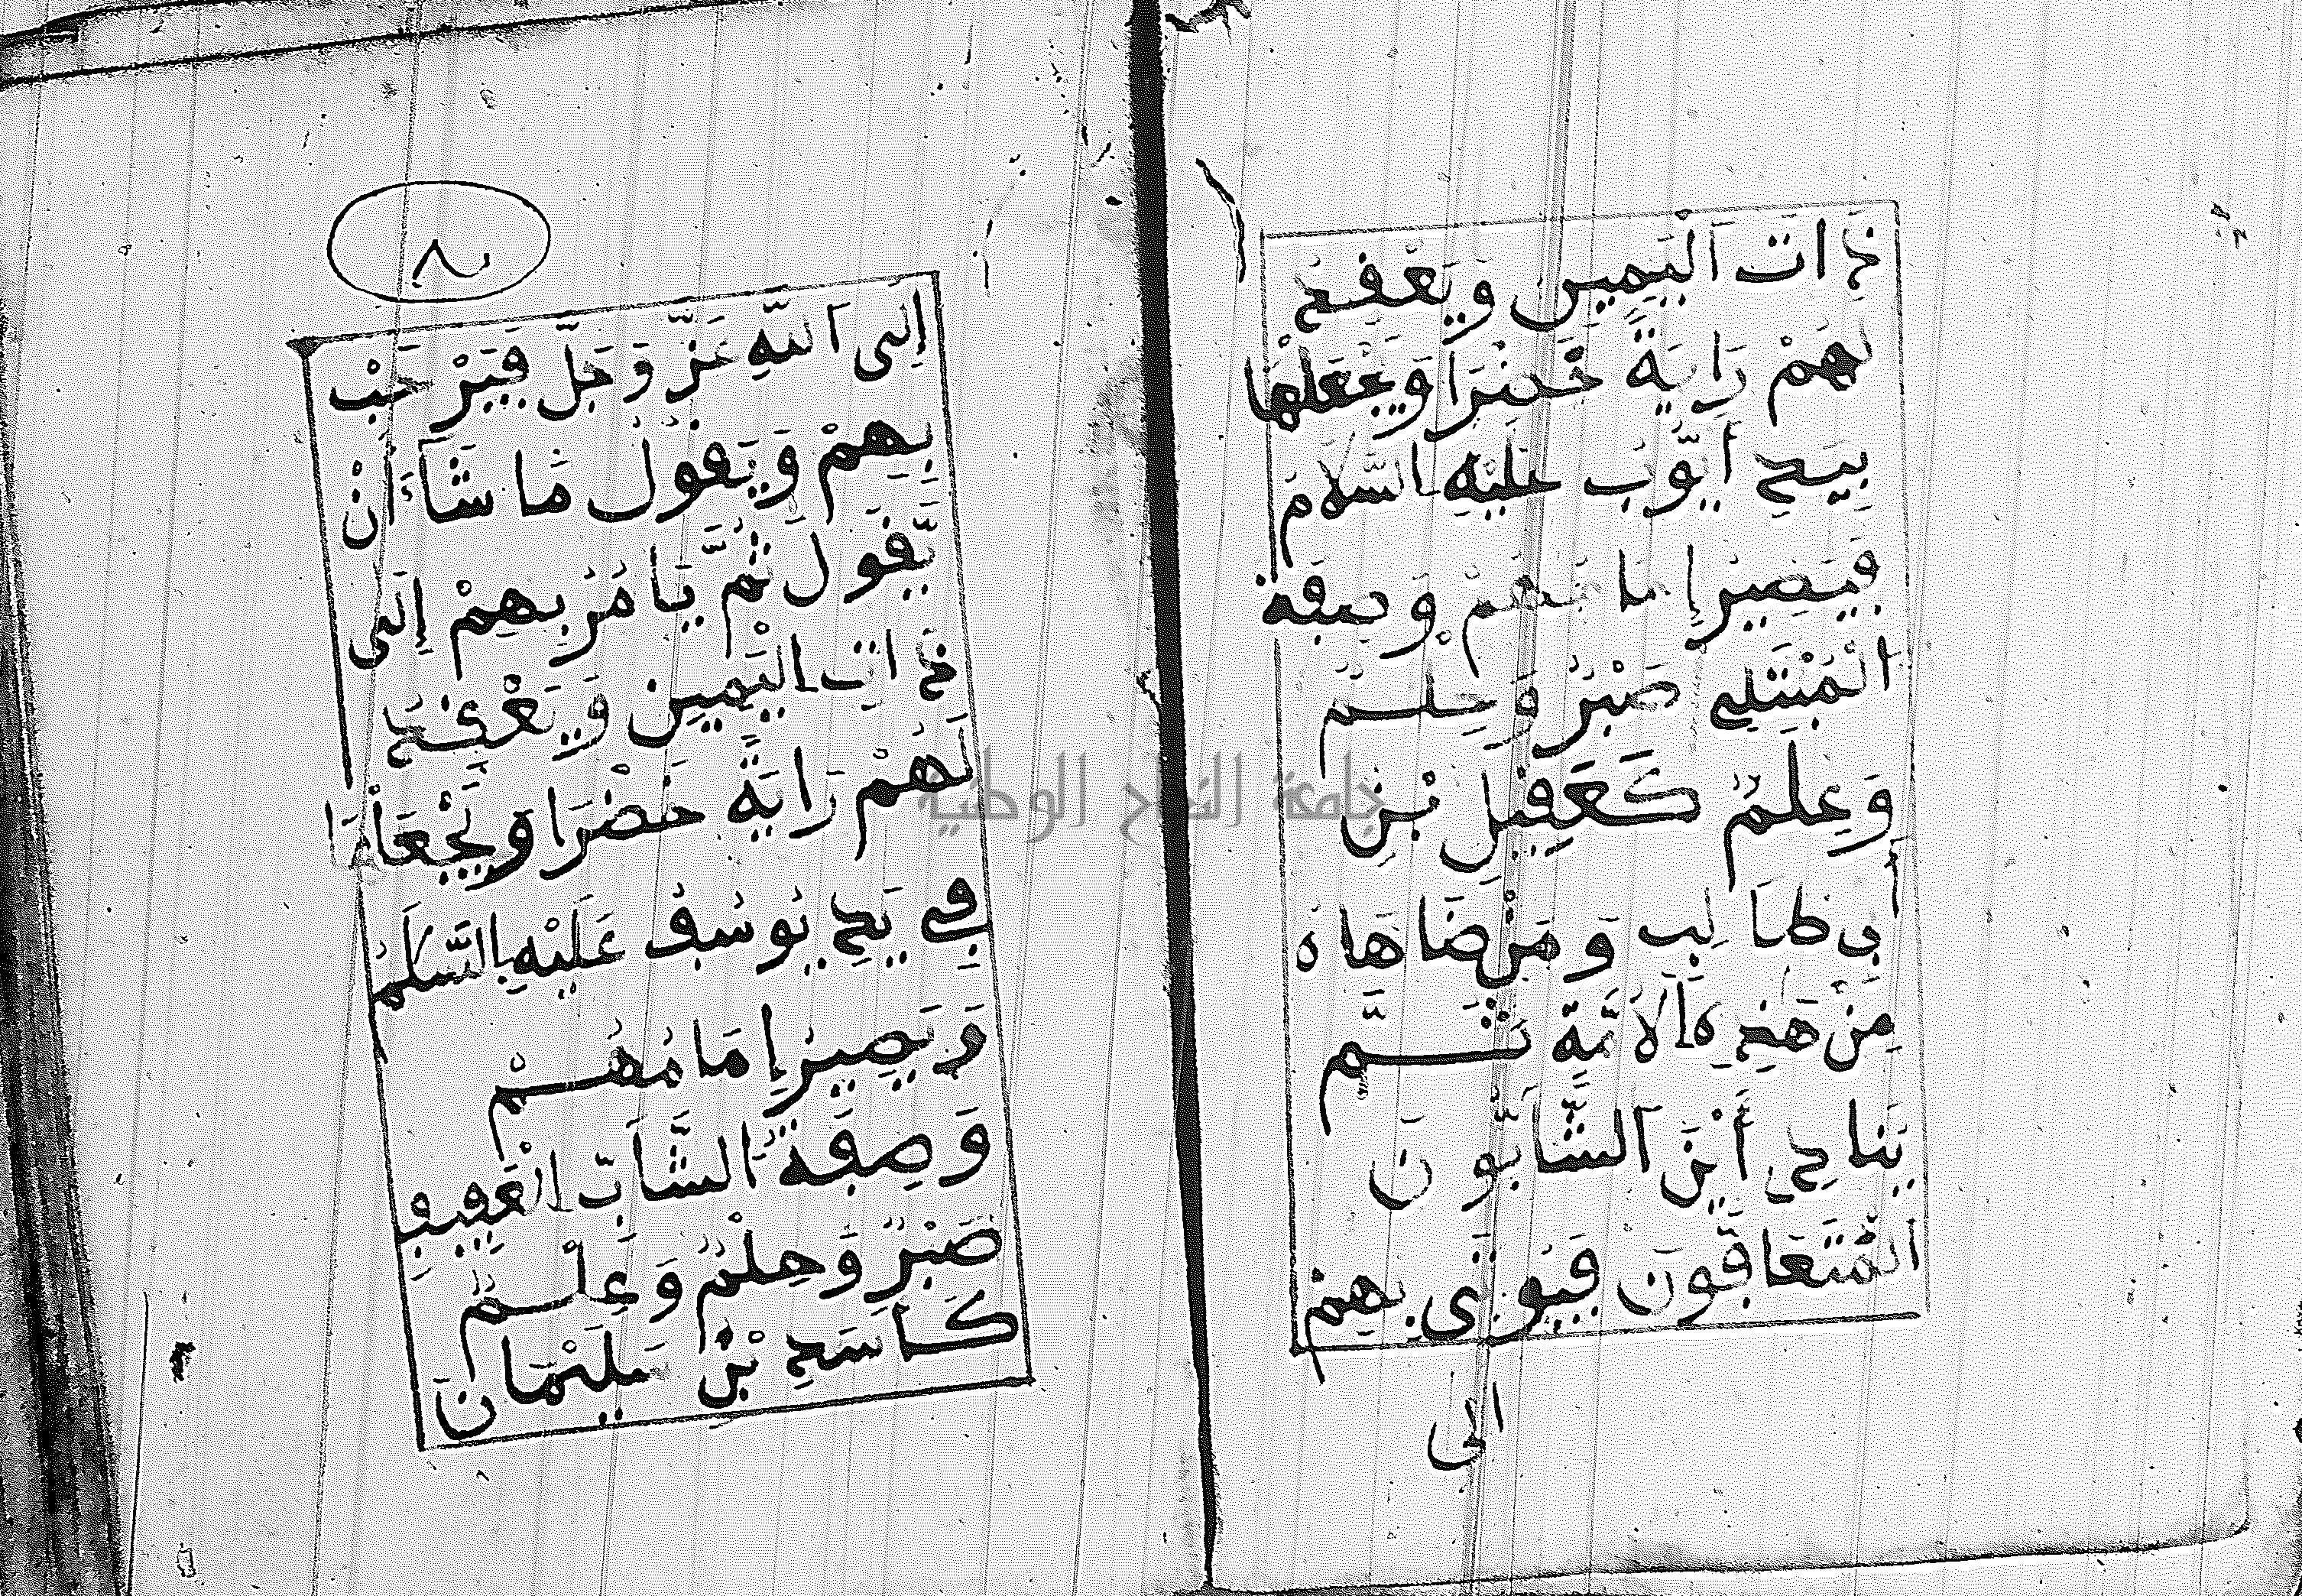 ذَاتَ اَلْيَمِينِ وَيَعْقِدُ
لَهُمْ رَايَةً خَضْرَا وَيَجْعَلُهَا
بِيَدِ أَيُّوبَ عَلَيْهِ السَّلَامُ
فَيَصِيرُ إِمَامَهُمْ وَصِفَة
الْمُبْتَلِي صَبْرٌ وَحِلْمٌ
وَعِلْمٌ كَعَقِيلِ بْنِ
أَبِي طَالِبٍ وَمَنْ ضَاهَاهُ
مِنْ هَذِهِ اَلْأُمَّةِ ثُمَّ
يُنَادِي أَيْنَ اَلشَّابُّونَ
الْمُتَعَافُّونَ فَيُوتَى بِهِمْ
الى
٨
إِلَى اَللَّهِ عَزَّ وَجَلَّ فَيُرَحِّبُ
بِهِمْ وَيَقُولُ مَا شَآءَ اَنْ
يَّقُولَ ثُمَّ يَامُرُ بِهِمْ إِلَى
ذَاتِ الْيَمِينِ وَيَعْقِدُ
لَهُمْ رَايَةً خَضْرَا وَيَجْعَلُهَا
فِي يَدِ يُوسُفَ عَلَيْهِ السَّلَمُ
وَيَصِيرُ إِمَامُهُمْ
وَصِفَةُ اَلشَّابِّ الْعَفِيفِ
صَبْرٌ وَحِلْمٌ وَعِلْمٌ
كَاسَدِ بْنِ سُلَيْمَانَ
جامعة النجاح الوطنية